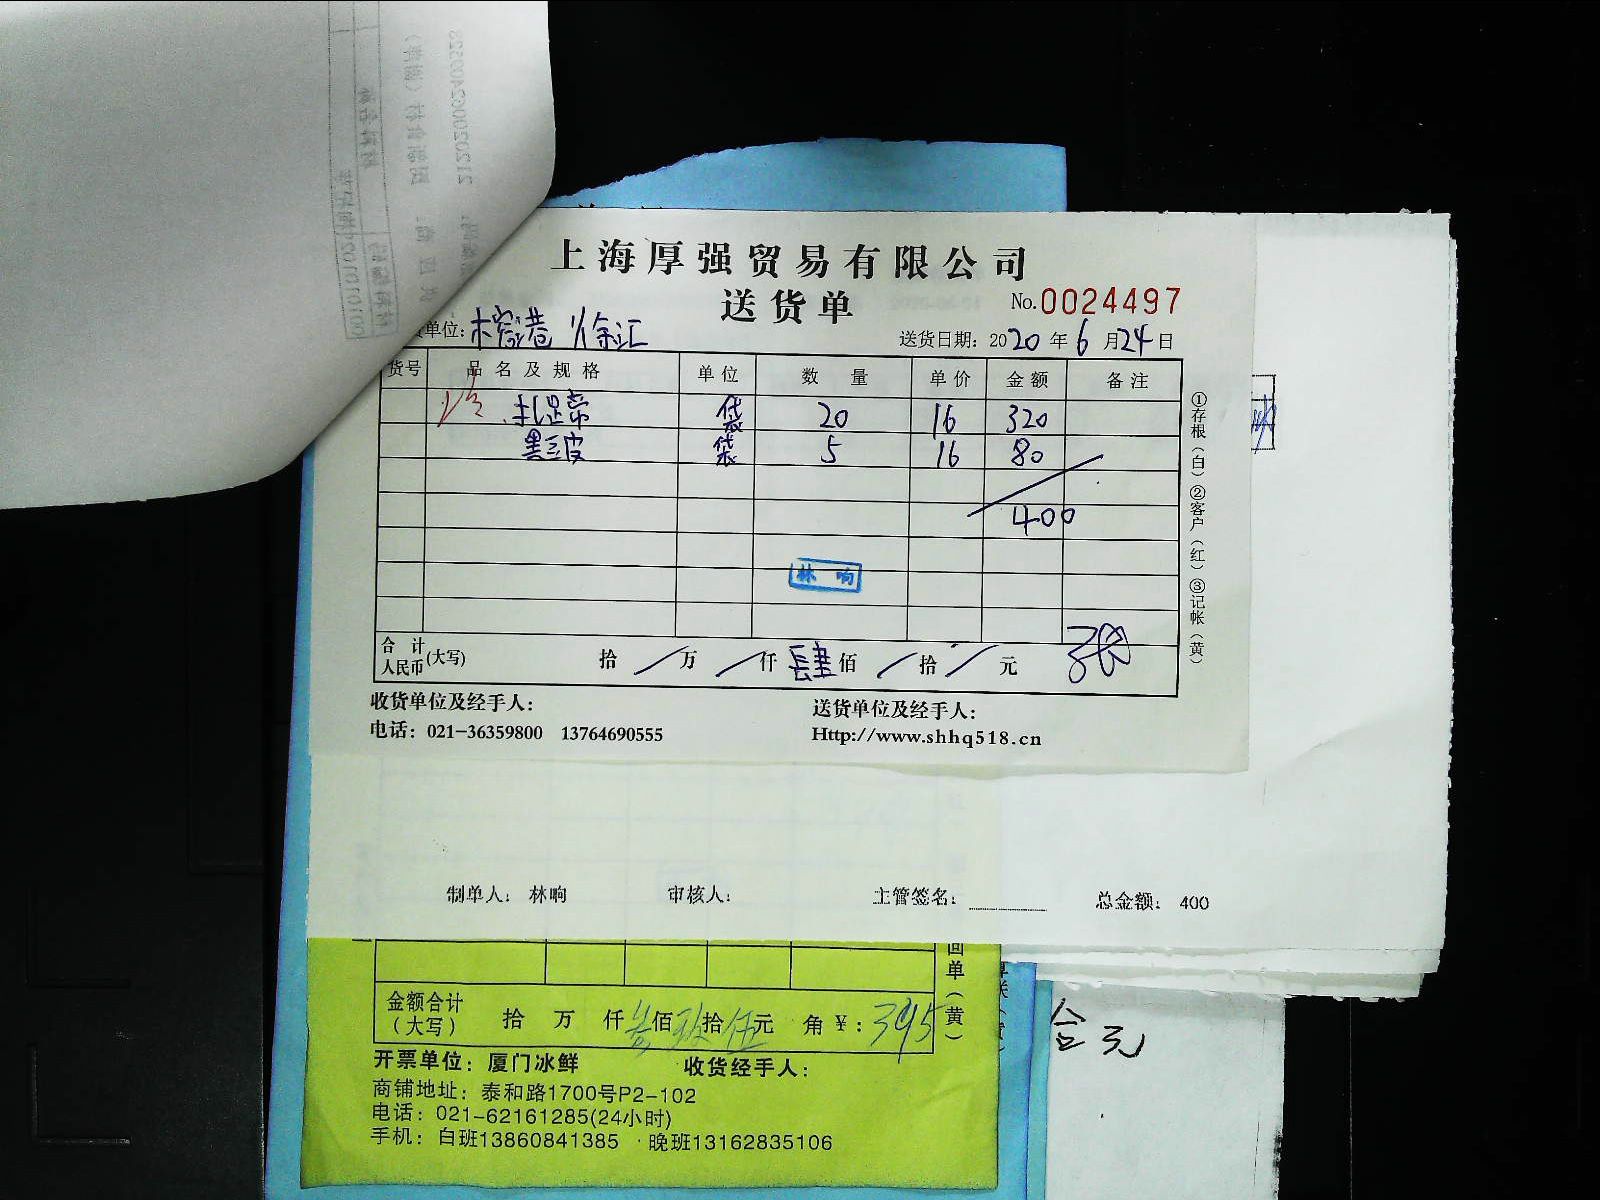 上海厚强贸易有限公司
送货单
No.0024497
单位: 榕港 徐汇
送货日期: 2020年6月24日
货号 品名及规格 单位 数量 单价 金额 备注
袋 20 16 320
黑豆皮 袋 5 16 80
400
林响
合计人民币(大写) 拾 万 仟 肆佰 拾 元
收货单位及经手人:
送货单位及经手人:
电话: 021-36359800 13764690555
Http://www.shhq518.cn
①存根(白)②客户(红)③记帐(黄)
制单人: 林响 审核人: 主管签名: 总金额: 400
回单(黄)
金额合计(大写) 拾 万 仟 佰 玖拾伍元 角 ¥: 395
开票单位: 厦门冰鲜 收货经手人:
商铺地址: 泰和路1700号P2-102
电话: 021-62161285(24小时)
手机: 白班13860841385 晚班13162835106